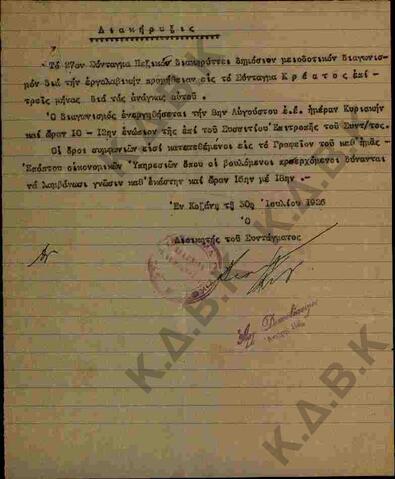 Διακήρυξις
Τό 27ον Σύνταγμα Πεζικοῦ διακηρύττει δημόσιον μειοδοτικόν διαγωνισ-
μόν διά τήν ἐργολαβικήν προμήθειαν εἰς τό Σύνταγμα Κρέατος ἐπί
τρεῖς μῆνας διά τάς ἀνάγκας αὐτοῦ.
Ὁ διαγωνισμός ἐνεργηθήσεται τήν 8ην Αὐγούστου ἐ.ἔ. ἡμέραν Κυριακήν
καί ὥραν 10 - 12ην ἐνώπιον τῆς ἐπί τοῦ Συσσιτίου Ἐπιτροπῆς τοῦ Συντ/τος.
Οἱ ὅροι συμφωνιῶν εἰσί κατατεθειμένοι εἰς τό Γραφεῖον τοῦ καθ'ἡμᾶς
Ἐπόπτου οἰκονομικῶν Ὑπηρεσιῶν ὅπου οἱ βουλόμενοι προσερχόμενοι δύνανται
νά λαμβάνωσι γνῶσιν καθ'ἑκάστην καί ὥραν 16ην μέ 18ην.-
Ἐν Κοζάνῃ τῇ 30ῃ Ἰουλίου 1926
Ὁ
Διοικητής τοῦ Συντάγματος
Κ.Δ.Β.Κ
Κ.Δ.Β.Κ
Κ.Δ.Β.Κ